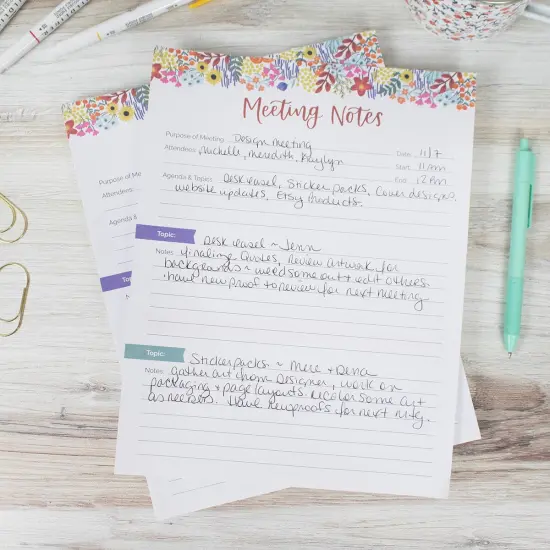 Meeting Notes
Purpose of Meeting: Design meeting
Date: 11/7
Attendees: Michelle, Meredith, Kaylyn
Start: 11am
End: 12pm
Agenda & Topics: Desk easel, Sticker packs, Cover designs,
website updates, Etsy products.
Topic: Desk easel ~ Jenn
Notes: Finalize Quotes, Review artwork for
backgrounds ~ need some out & edit others.
· have new proof to review for next meeting
Topic: Sticker packs ~ Mere & Dena
Notes: gather art from Designer, work on
packaging & page layouts. recolor some art
as needed. Have new proofs for next mtg.
Purpose of Meeting
Attendees
Agenda &